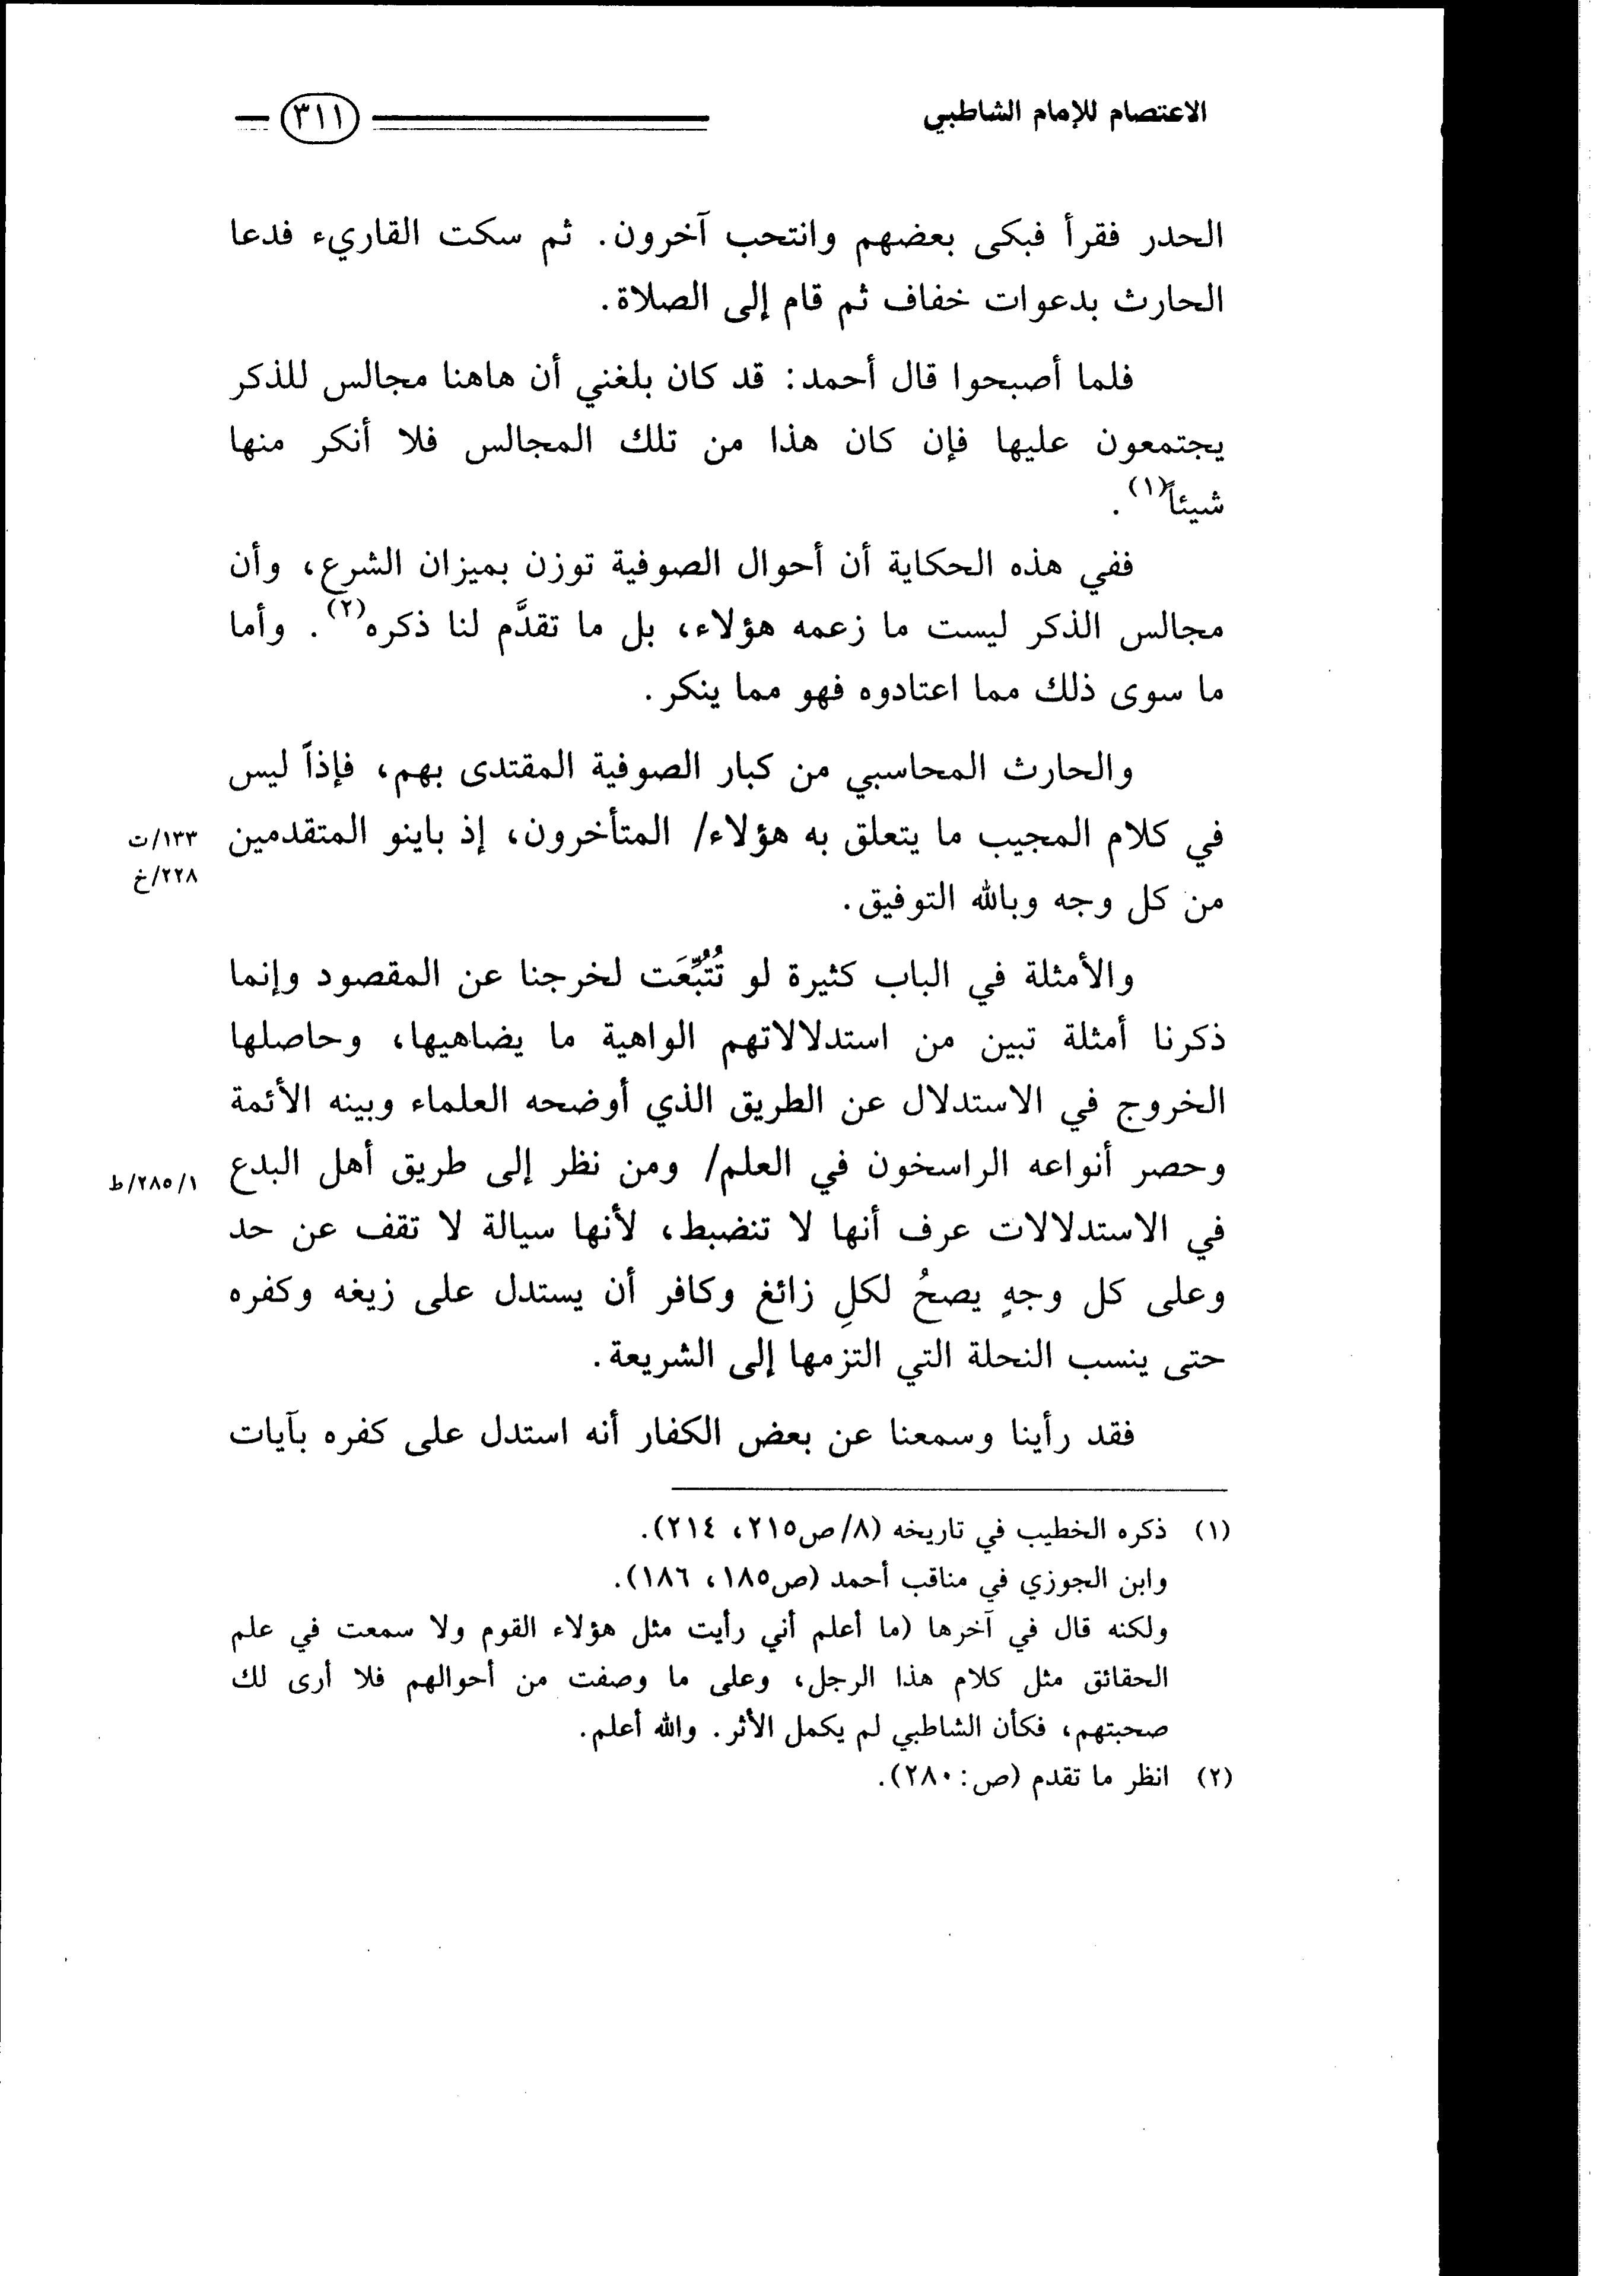 الاعتصام للإمام الشاطبي ٣١١
الحدر فقرأ فبكى بعضهم وانتحب آخرون. ثم سكت القاريء فدعا
الحارث بدعوات خفاف ثم قام إلى الصلاة.
فلما أصبحوا قال أحمد: قد كان بلغني أن هاهنا مجالس للذكر
يجتمعون عليها فإن كان هذا من تلك المجالس فلا أنكر منها
شيئاً(١).
ففي هذه الحكاية أن أحوال الصوفية توزن بميزان الشرع، وأن
مجالس الذكر ليست ما زعمه هؤلاء، بل ما تقدَّم لنا ذكره(٢). وأما
ما سوى ذلك مما اعتادوه فهو مما ينكر.
والحارث المحاسبي من كبار الصوفية المقتدى بهم، فإذاً ليس
في كلام المجيب ما يتعلق به هؤلاء/ المتأخرون، إذ باينو المتقدمين
١٣٣/ت
٢٢٨/خ
من كل وجه وبالله التوفيق.
والأمثلة في الباب كثيرة لو تُتُبِّعَت لخرجنا عن المقصود وإنما
ذكرنا أمثلة تبين من استدلالاتهم الواهية ما يضاهيها، وحاصلها
الخروج في الاستدلال عن الطريق الذي أوضحه العلماء وبينه الأئمة
وحصر أنواعه الراسخون في العلم/ ومن نظر إلى طريق أهل البدع
١/٢٨٥/ط
في الاستدلالات عرف أنها لا تنضبط، لأنها سيالة لا تقف عن حد
وعلى كل وجهٍ يصحُ لكلِ زائغ وكافر أن يستدل على زيغه وكفره
حتى ينسب النحلة التي التزمها إلى الشريعة.
فقد رأينا وسمعنا عن بعض الكفار أنه استدل على كفره بآيات
(١) ذكره الخطيب في تاريخه (٨/ص٢١٥، ٢١٤).
وابن الجوزي في مناقب أحمد (ص١٨٥، ١٨٦).
ولكنه قال في آخرها (ما أعلم أني رأيت مثل هؤلاء القوم ولا سمعت في علم
الحقائق مثل كلام هذا الرجل، وعلى ما وصفت من أحوالهم فلا أرى لك
صحبتهم، فكأن الشاطبي لم يكمل الأثر. والله أعلم.
(٢) انظر ما تقدم (ص:٢٨٠).